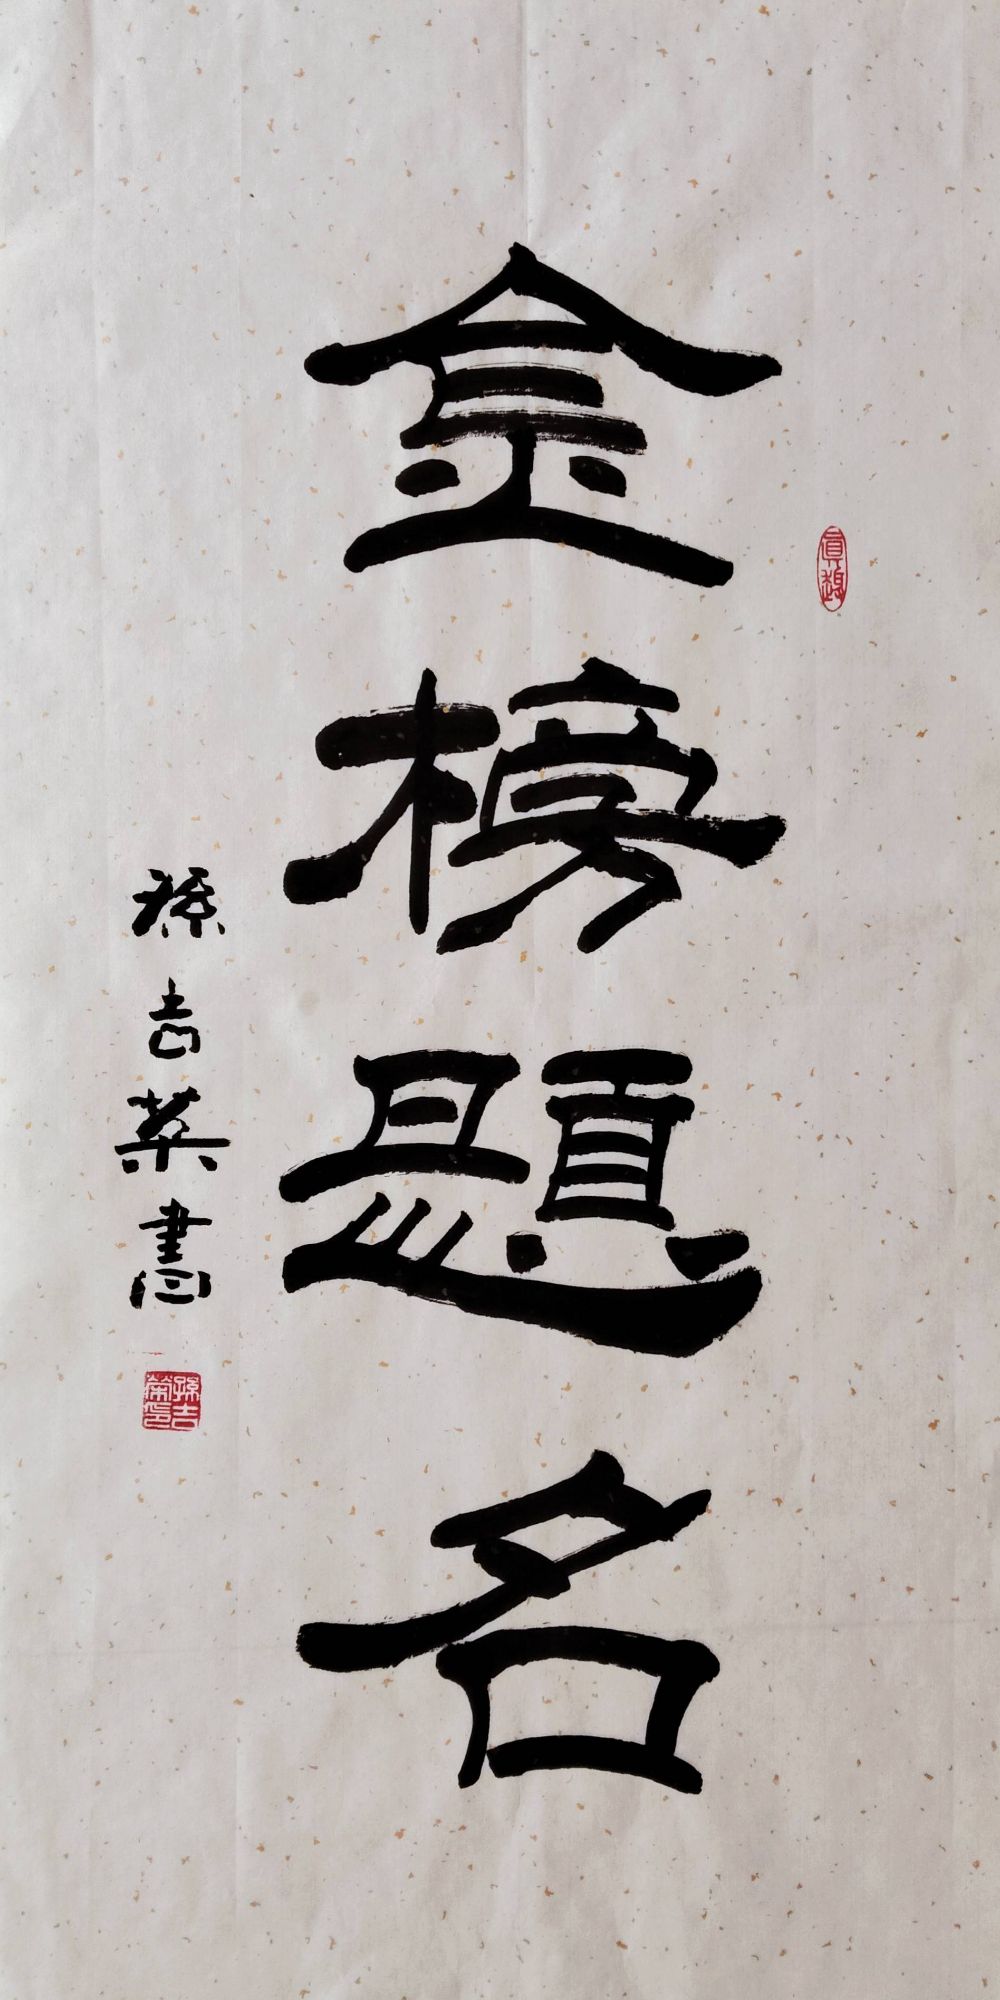 金榜題名
孫吉榮書
孫吉榮印